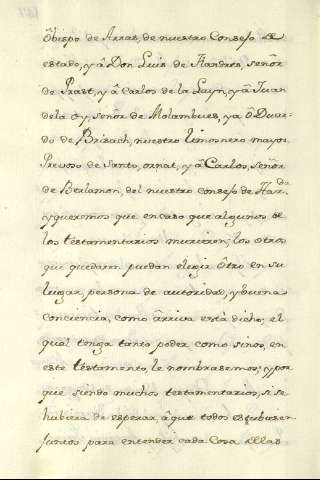 Obispo de Arras, de nuestro Consejo de
estado, y â Don Luis de Flandres, señor
de Prast, y â Carlos de la Layn, y â Juan
dela oy, señor de Molambues, ya ô Duar-
do de Brisach, nuestro limosnero mayor
Prevoso de Santo, ornat, y â Carlos, señor
de Betalamon, del nuestro consejo de
y queremos que en caso que algunos de
los testamentarios murieren, los otros
que quedaren puedan elegir ôtro en su
lugar, persona de autoridad, y buena
conciencia, como ârriva está dicho; el
qual tenga tanto poder como sinos, en
este testamento, le nombrasemos; y por
que siendo muchos testamentarios, si se
hubiera de esperar, â que todos estubiesen
juntos para entender cada cosa dellas